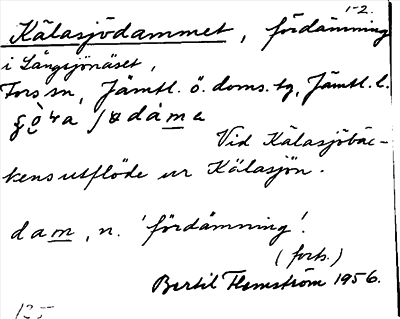 1-2.
Kälasjödammet, fördämning
i Långsjönäset,
Fors sn, Jämtl. ö. doms. tg, Jämtl. l.
Vid Kälasjöbäc-
kens utflöde ur Kälasjön.
dam, n. 'fördämning'.
(forts.)
Bertil Flemström 1956.
125